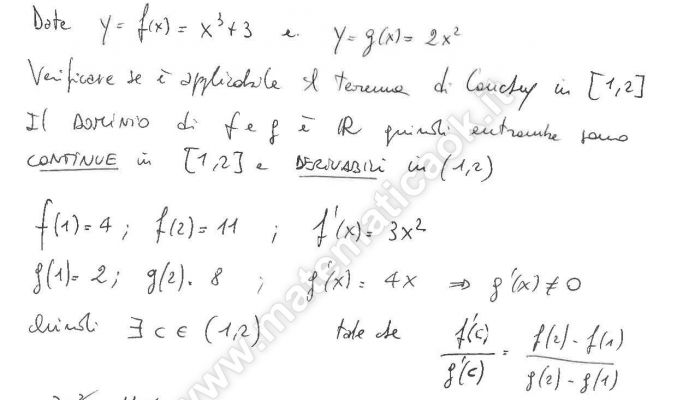 Date y = f(x) = x³+3 e. y = g(x) = 2x²
Verificare se è applicabile il teorema di Cauchy in [1,2]
Il DOMINIO di f e g è ℝ quindi entrambe sono
CONTINUE in [1,2] e DERIVABILI in (1,2)
f(1)=4 ; f(2)=11 ; f'(x)=3x²
g(1)=2 ; g(2)=8 ; g'(x)=4x ⇒ g'(x)≠0
Quindi ∃ c ∈ (1,2) tale che f'(c)/g'(c) = (f(2)-f(1))/(g(2)-g(1))
www.matematicaok.it